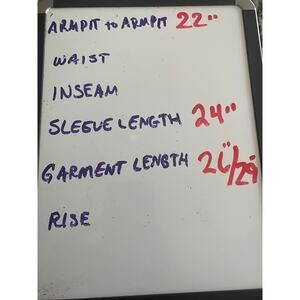 ARMPIT to ARMPIT 22"
WAIST
INSEAM
SLEEVE LENGTH 24"
GARMENT LENGTH 26"/29"
RISE